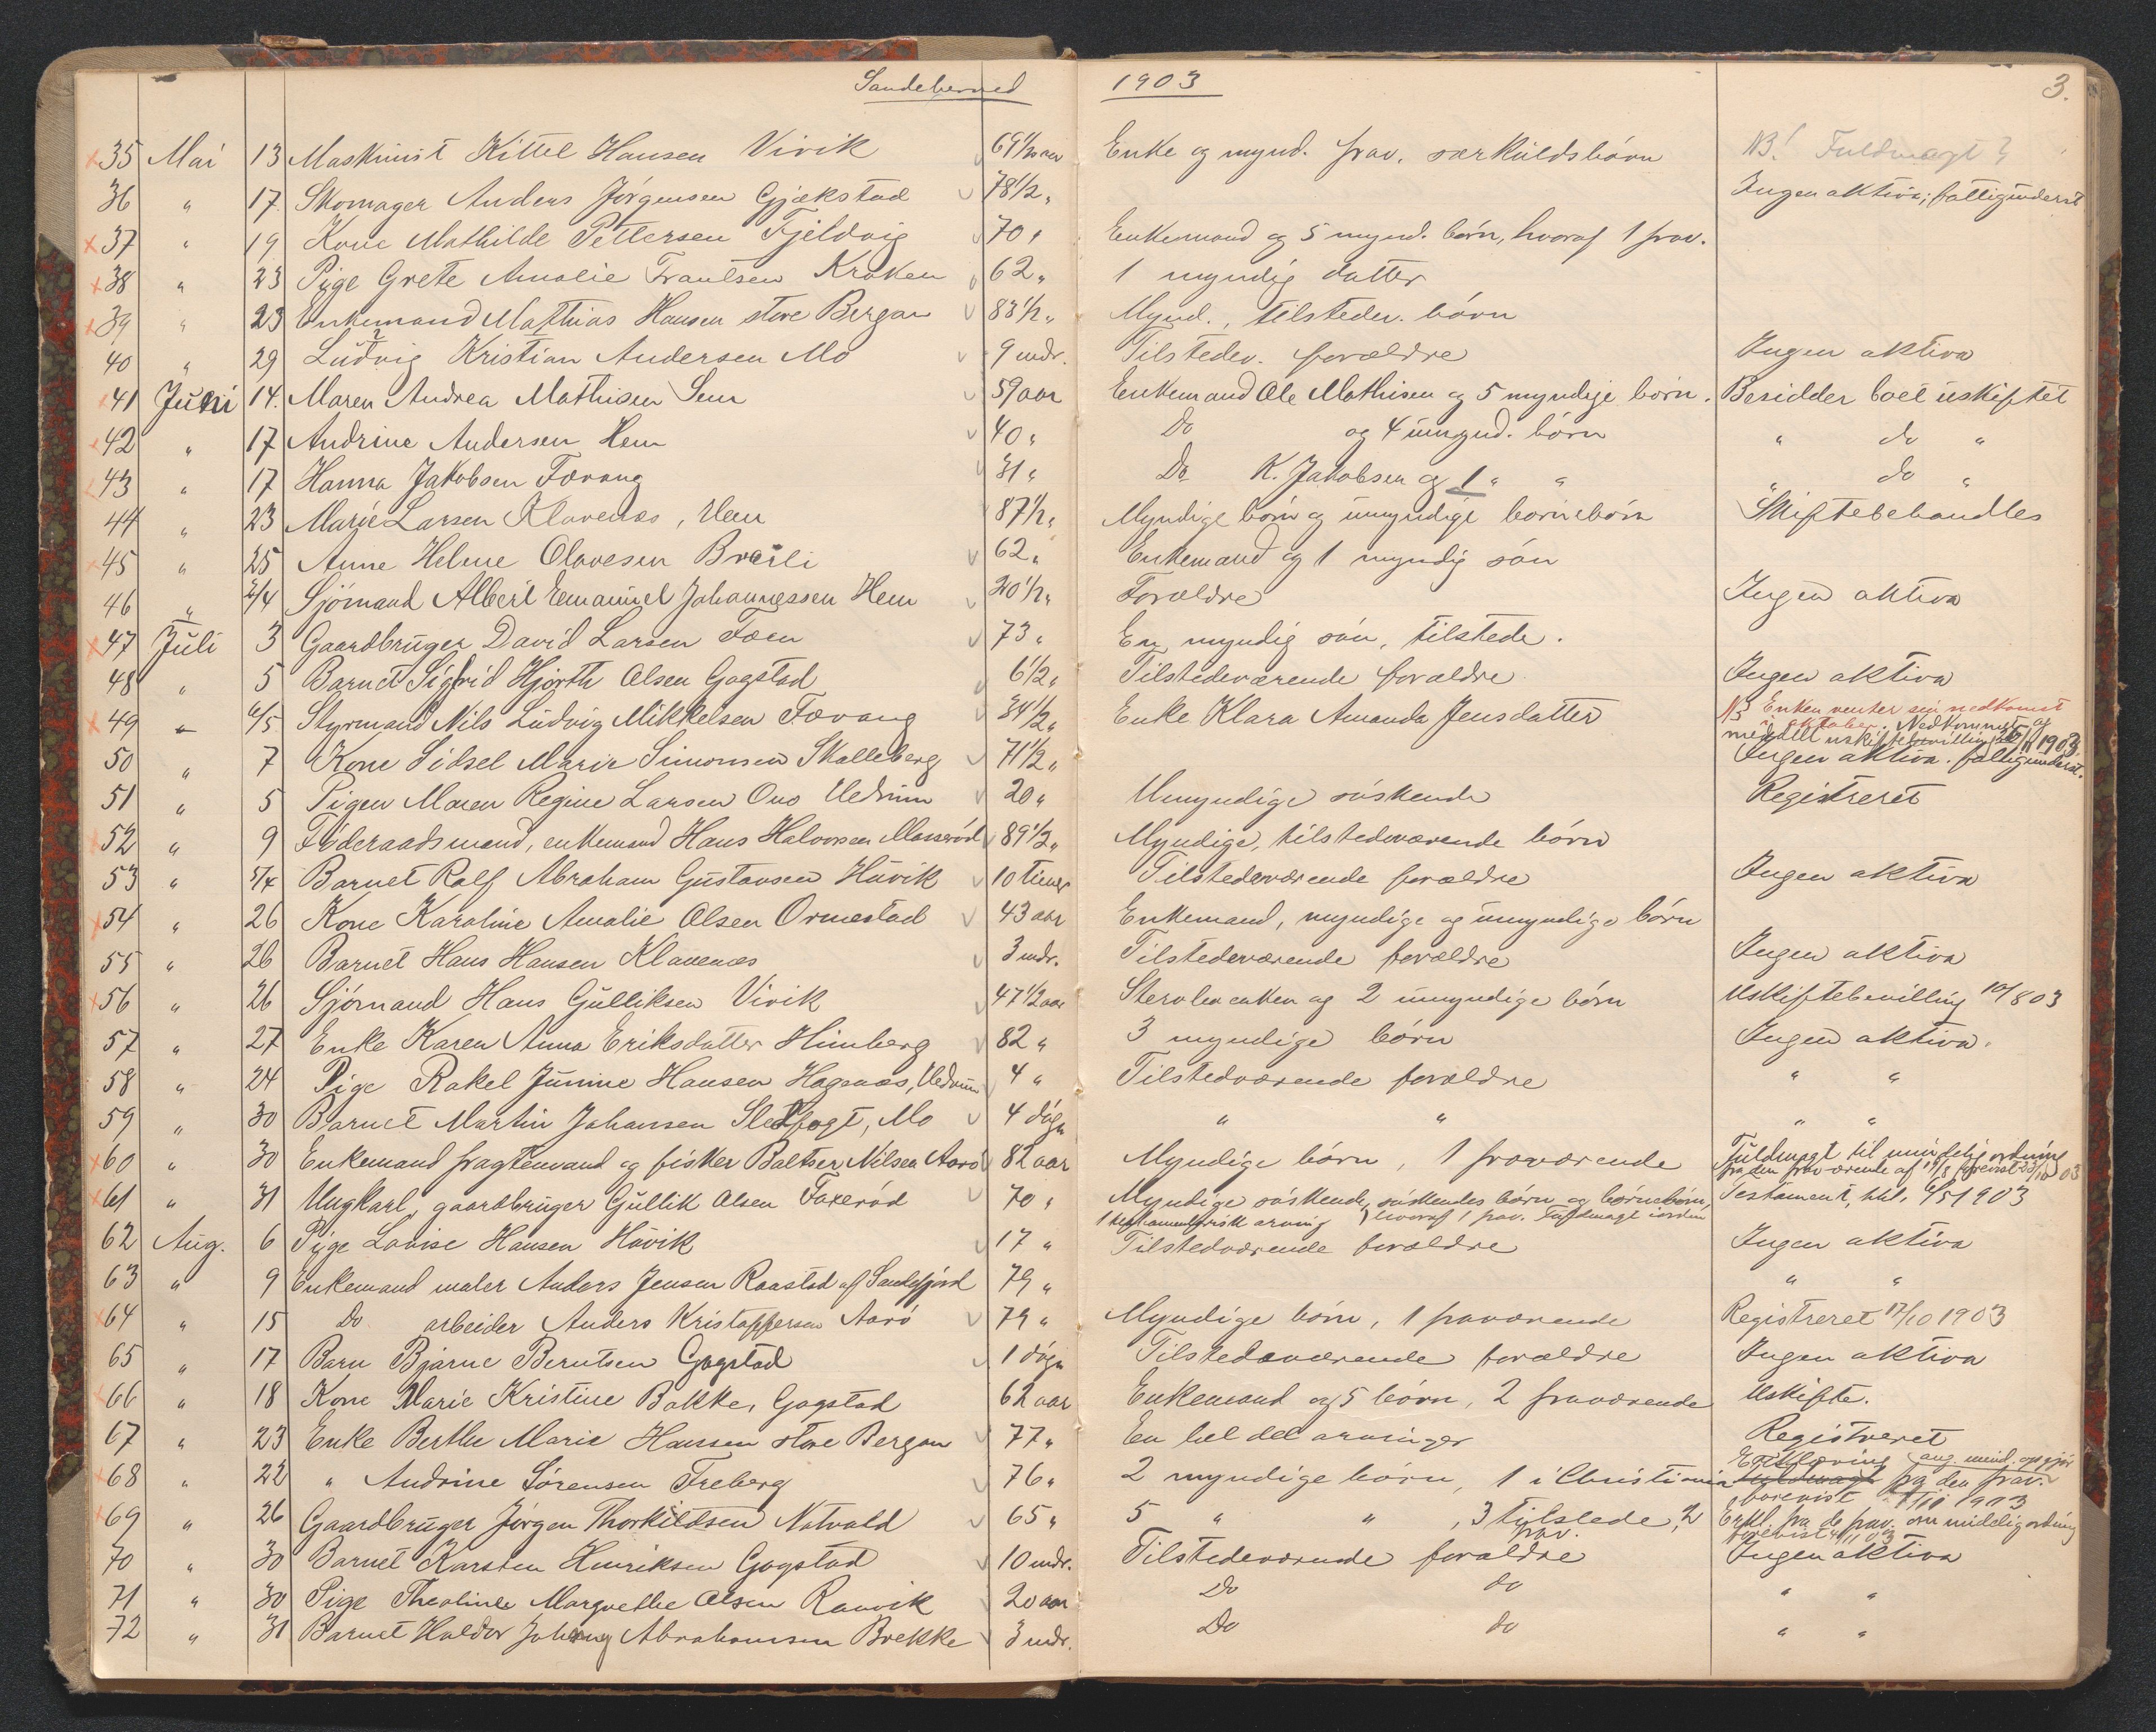 Sandeherred 1903 3.
×35 Mai 13 Maskinist Kittel Hansen Virik 69 1/2 aar Enke og mynd. frav. særkuldsbörn NB! Fuldmagt?
36 " 17 Skomager Anders Jörgensen Gjekstad 78 1/2 " Ingen aktiva; fattigunderst
×37 " 19 Kone Mathilde Pettersen Fjeldvig 70 " Enkemand og 5 mynd. börn, hvoraf 1 frav.
×38 " 23 Pige Grete Amalie Frantsen Kraken 62 " 1 myndig datter
×39 " 23 Enkemand Mathias Hansen store Bergan 83 1/2 " Mynd., tilstedev. börn
40 " 29 Ludvig Kristian Andersen Mo 9 mdr. Tilstedev. forældre Ingen aktiva
×41 Juni 14. Maren Andrea Mathisen Sem 59 aar Enkemand Ole Mathisen og 5 myndige börn. Besidder boet uskiftet
×42 " 17 Andrine Andersen Hem 40 " Do og 4 umynd. börn " do "
×43 " 17 Hanna Jakobsen Tævang 31 " Do K. Jakobsen og 1 " " " do "
44 " 23 Marie Larsen Klavenæs, Hem 87 1/2 " Myndige börn og umyndige börnebörn Skiftebehandles
×45 " 25 Anne Helene Olavesen Breili 62 " Enkemand og 1 myndig sön
46 " 2/4 Sjömand Albert Emanuel Johannessen Hem 20 1/2 " Forældre Ingen aktiva
×47 Juli 3 Gaardbruger David Larsen Foen 73 " En myndig sön, tilstede.
48 " 5 Barnet Sigfrid Hjorth Olsen Gogstad 6 1/2 " Tilstedeværende forældre Ingen aktiva
×49 " 6/5 Styrmand Nils Ludvig Mikkelsen Tævang 34 1/2 " Enke Klara Amanda Jensdatter NB Enken venter sin nedkomst
i oktober. Nedkommet og
meddelt uskiftebevilling 1903.
50 " 7 Kone Sidsel Marie Simonsen Skalleberg 71 1/2 " Ingen aktiva. fattigunderst.
51 " 5 Pigen Maren Regine Larsen Ono Hedrum 20 " Umyndige söskende Registreret
×52 " 9 Föderaadsmand, enkemand Hans Halvorsen Masseröd 89 1/2 " Myndige, tilstedeværende börn
53 " 5/4 Barnet Ralf Abraham Gustavsen Huvik 10 timer Tilstedeværende forældre Ingen aktiva
×54 " 26 Kone Karoline Amalie Olsen Ormestad 43 aar Enkemand, myndige og umyndige börn
55 " 26 Barnet Hans Hansen Klavenæs 3 mdr. Tilstedeværende forældre Ingen aktiva
×56 " 26 Sjömand Hans Gulliksen Virik 47 1/2 aar Stervboenken og 2 umyndige börn Uskiftebevilling 10/8 03
57 " 27 Enke Karen Anna Eriksdatter Himberg 82 " 3 myndige börn Ingen aktiva.
58 " 24 Pige Rakel Junine Hansen Hagenæs, Hedrum 4 " Tilstedværende forældre " "
59 " 30 Barnet Martin Johansen Sletfogt, Mo 4 dögn " " " "
×60 " 30 Enkemand fragtemand og fisker Baltser Nilsen Aarö 82 aar Myndige börn, 1 fraværende Fuldmagt til mindelig ordning
fra den fraværende af 19/8 forevist 23/10 03
×61 " 31 Ungkarl, gaardbruger Gullik Olsen Faxeröd 70 " Myndige söskende, söskendes börn og börnebörn, Testament, 1903
1 testamentarisk arving hvoraf 1 frav. Fuldmagt iorden
62 Aug. 6 Pige Lovise Hansen Huvik 17 " Tilstedværende forældre Ingen aktiva
63 " 9 Enkemand maler Anders Jensen Raastad af Sandefjord 79 " " "
×64 " 15 Do arbeider Anders Kristoffersen Aarö 79 " Myndige börn, 1 fraværende Registreret 17/10 1903
65 " 17 Barn Bjarne Berntsen Gogstad 1 dögn Tilstedeværende forældre Ingen aktiva
×66 " 18 Kone Marie Kristine Bakke, Gogstad 62 aar Enkemand og 5 börn, 2 fraværende Uskifte.
67 " 23 Enke Berthe Marie Hansen store Bergan 77 " En hel del arvinger Registreret
×68 " 22 " Andrine Sörensen Freberg 76 " 2 myndige börn, 1 i Christiania Erklæring ang. mind. opgjör
Fuldmagt fra den frav.
forevist 1903
×69 " 26 Gaardbruger Jörgen Thorkildsen Natvald 65 " 5 " " , 3 tilstede, 2 frav. Erkl. fra de frav. om mindelig ordning
forevist
70 " 30 Barnet Karsten Henriksen Gogstad 10 mdr. Tilstedeværende forældre Ingen aktiva
71 " 30 Pige Theoline Margrethe Olsen Ranvik 20 aar Do do " "
72 " 31 Barnet Haldor Johang Abrahamsen Brekke 3 mdr. Do do " "